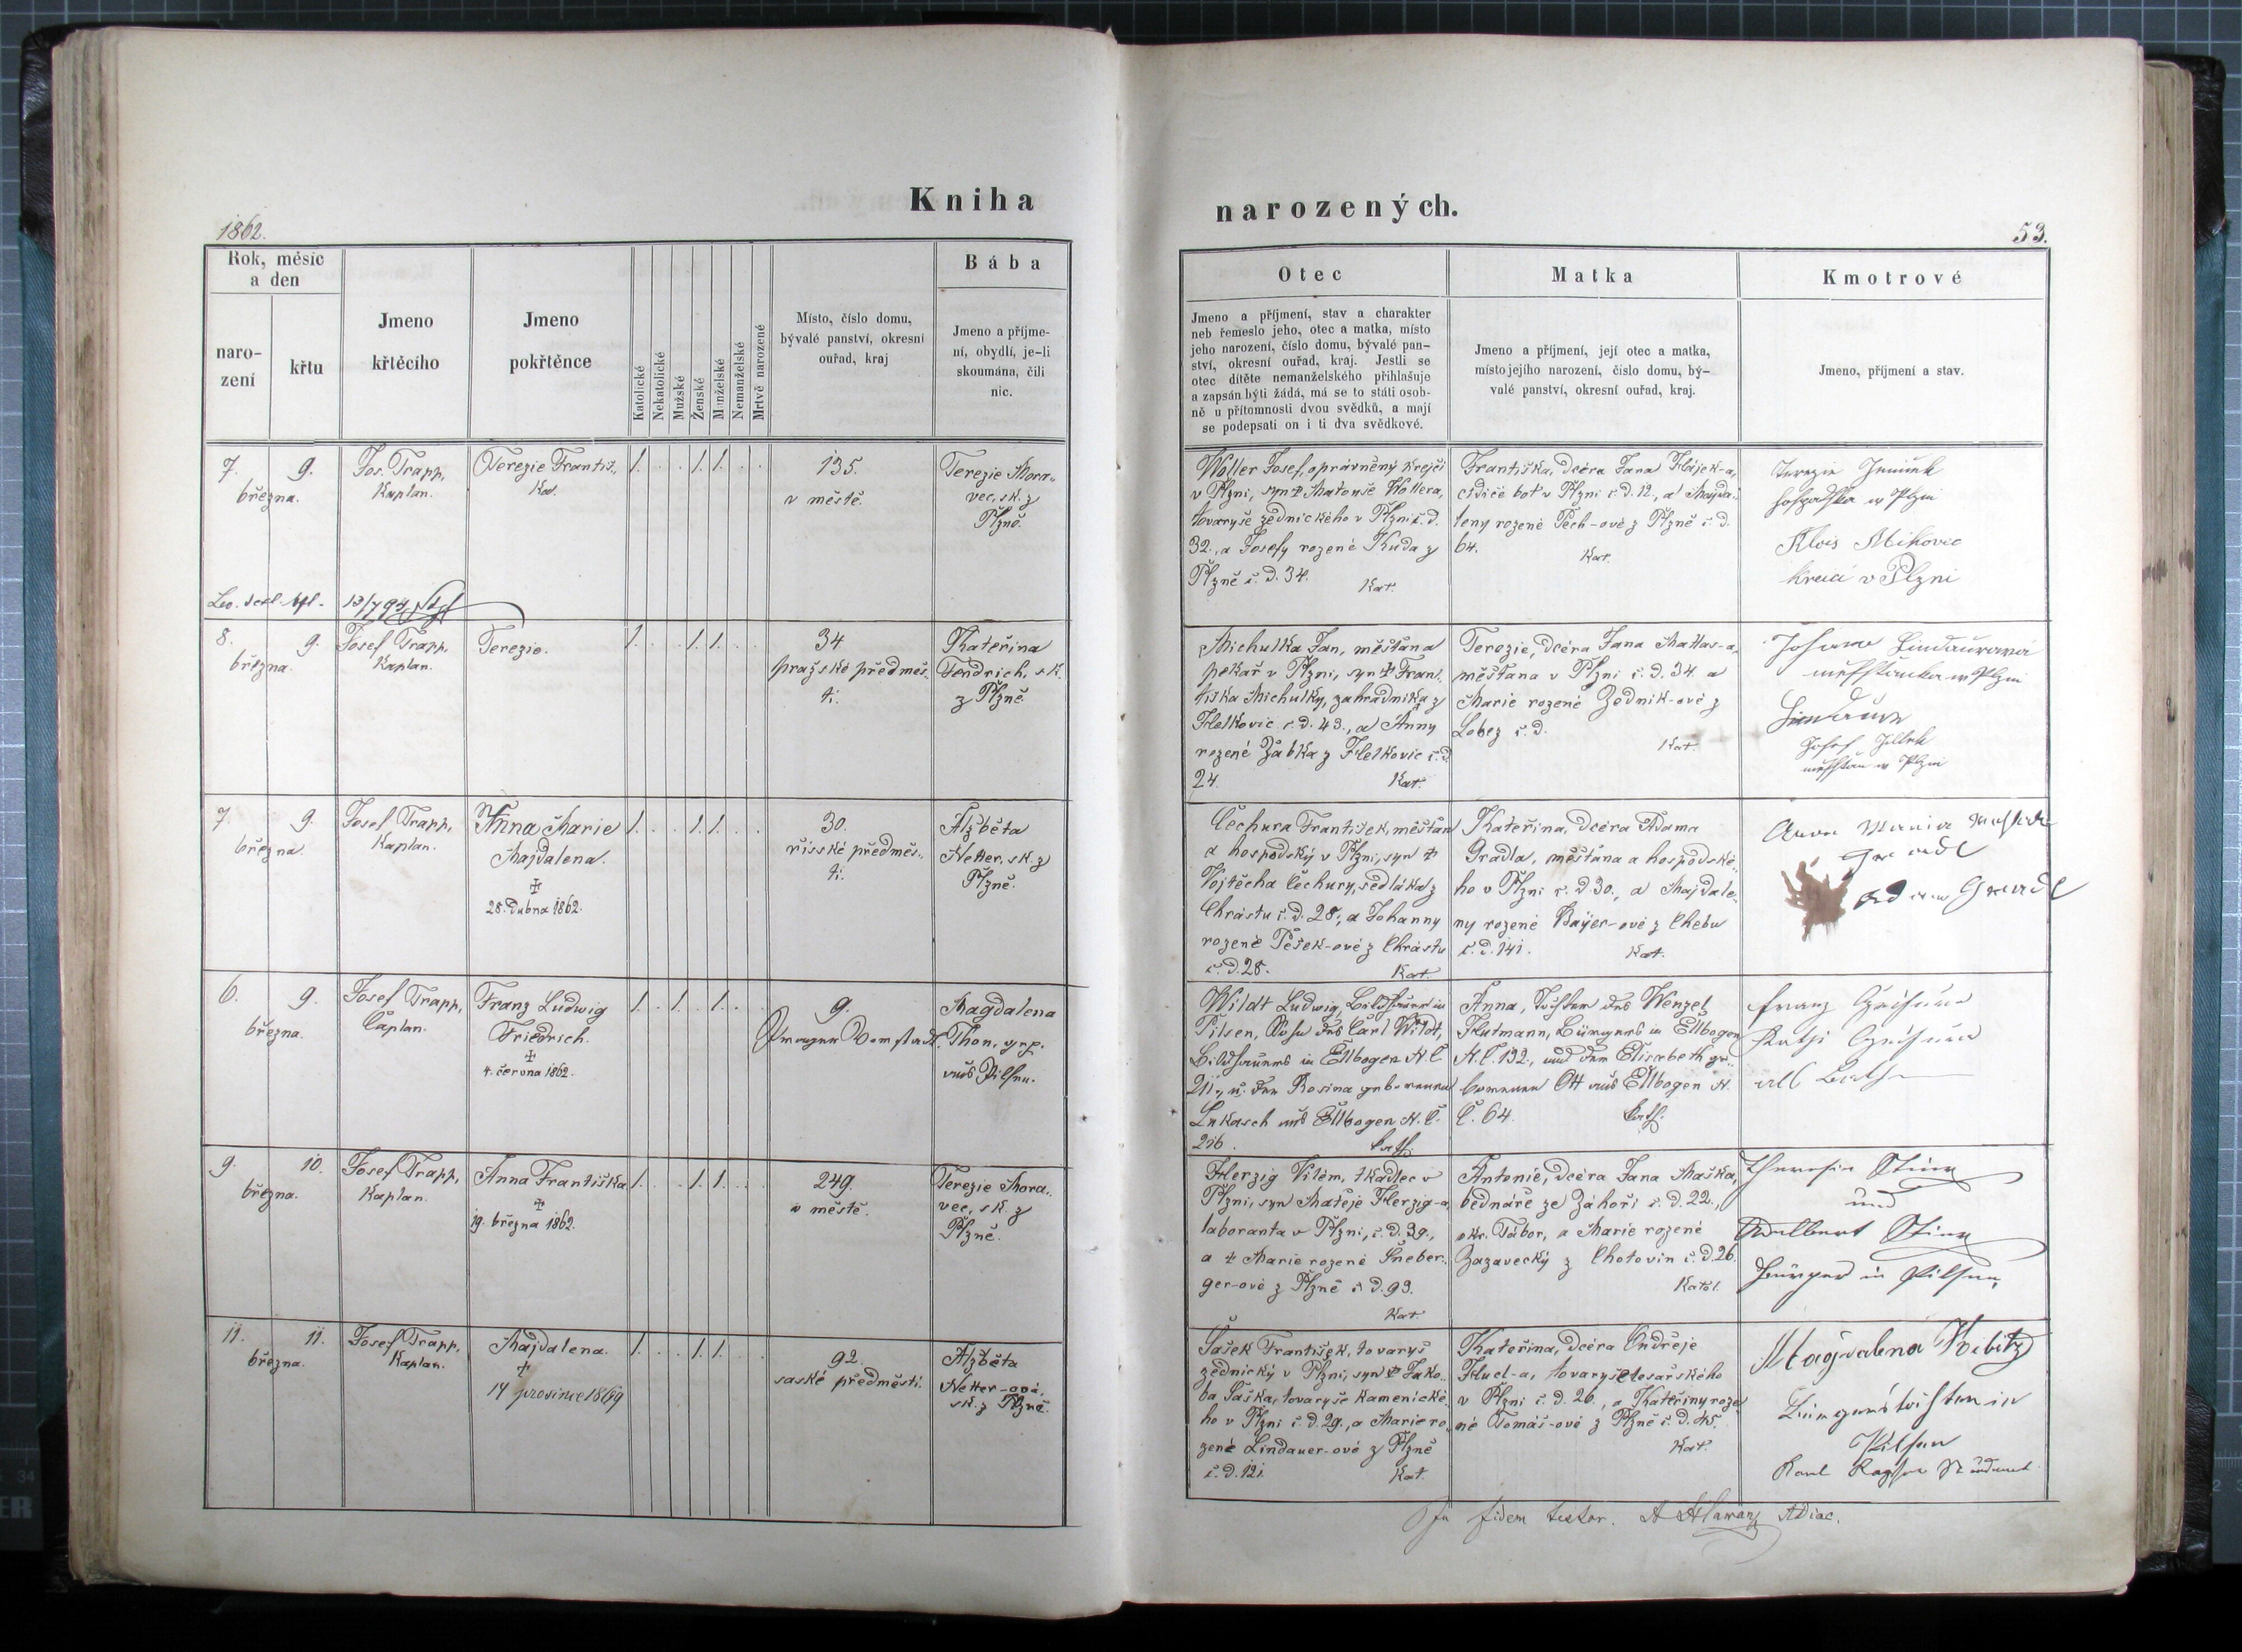 Kniha
narozených.
1862.
53.
Rok, měsíc
a den
naro-
zení
křtu
Jmeno
křtěcího
Jmeno
pokřtěnce
Katolické
Nekatolické
Mužské
Ženské
Manželské
Nemanželské
Mrtvě narozené
Místo, číslo domu,
bývalé panství, okresní
ouřad, kraj
Bába
Jmeno a příjme-
ní, obydlí, je-li
skoumána, čili
nic.
Otec
Jmeno a příjmení, stav a charakter
neb řemeslo jeho, otec a matka, místo
jeho narození, číslo domu, bývalé pan-
ství, okresní ouřad, kraj. Jestli se
otec dítěte nemanželského přihlašuje
a zapsán býti žádá, má se to státi osob-
ně u přítomnosti dvou svědků, a mají
se podepsati on i ti dva svědkové.
Matka
Jmeno a příjmení, její otec a matka,
místo jejího narození, číslo domu, bý-
valé panství, okresní ouřad, kraj.
Kmotrové
Jmeno, příjmení a stav.
7. 9.
března.
Jos. Trapp,
Kaplan.
Terezie Františ.,
Kat.
1. . . 1. 1. . .
135.
v městě.
Terezie Mora„
vec, sk. z
Plzně.
Woller Josef, oprávněný krejčí
v Plzni, syn ‡ Matouše Wollera,
tovaryše zednického v Plzni č. d.
32., a Josefy rozené Kuda z
Plzně č. d. 34.
Kat.
Františka, dcéra Jana Hájek-a,
cídiče bot v Plzni č. d. 12., a Majda„
leny rozené Pech-ové z Plzně č. d.
64.
Kat.
w Plzni
Alois Mikovec
v Plzni
13/7 94
8. 9.
března.
Josef Trapp,
Kaplan.
Terezie.
1. . . 1. 1. . .
34
pražské předměs„
tí.
Kateřina
Fendrich, sk.
z Plzně.
Michulka Jan, měšťan a
pekař v Plzni, syn ‡ Fran„
tiška Michulky, zahradníka z
Helkovic č. d. 43., a Anny
rozené Žabka z Helkovic č. d.
24.
Kat.
Terezie, dcéra Jana Mattas-a,
měšťana v Plzni č. d. 34. a
Marie rozené Zedník-ové z
Lobez č. d.
Kat.
w Plzni
Josef
w Plzni
7. 9.
března.
Josef Trapp,
Kaplan.
Anna Marie
Majdalena.
‡
28. dubna 1862.
1. . . 1. 1. . .
30.
říšské předměs„
tí.
Alžběta
Netter, sk. z
Plzně.
Čechura František, měšťan
a hospodský v Plzni, syn ‡
Vojtěcha Čechury, sedláka z
Chrástu č. d. 28., a Johanny
rozené Pešek-ové z Chrástu
č. d. 28.
Kat.
Kateřina, dcéra Adama
Gradla, měšťana a hospodské„
ho v Plzni č. d. 30., a Majdale„
ny rozené Bayer-ové z Chebu
č. d. 141.
Kat.
Anna Maria
Gradl
Adam Gradl
6. 9.
března.
Josef Trapp,
Caplan.
Franz Ludwig
Friedrich.
‡
4. června 1862.
1. . 1. . 1. . .
9.
Prager Vorstadt.
Magdalena
Thon, gep.
aus Pilsen.
Wildt Ludwig, Bildhauer in
Pilsen, Sohn des Carl Wildt,
Bildhauers in Ellbogen N. C.
211., u. der Rosina gebornenen
Lukasch aus Ellbogen N. C.
216.
Kath.
Anna, Tochter des Wenzel
Hutmann, Bürgers in Ellbogen
N. C. 192, und der Elisabeth ge„
bornenen Ott aus Ellbogen N.
C. 64.
Kath.
Franz
9. 10.
března.
Josef Trapp,
Kaplan.
Anna Františka
‡
19. března 1862.
1. . . 1. 1. . .
249.
v městě.
Terezie Mora„
vec, sk. z
Plzně.
Herzig Vilém, tkadlec v
Plzni, syn Matěje Herzig-a,
laboranta v Plzni, č. d. 39.,
a ‡ Marie rozené Šneber„
ger-ové z Plzně č. d. 93.
Kat.
Antonie, dcéra Jana Maška,
bednáře ze Záhoří č. d. 22.,
okr. Tábor, a Marie rozené
Zazavecký z Chotovin č. d. 26.
Katol.
Theresia Stier
und
Adalbert Stier
Bürger in Pilsen
11. 11.
března.
Josef Trapp,
Kaplan.
Majdalena.
‡
14 prosince 1869
1. . . 1. 1. . .
92.
saské předměstí.
Alžběta
Netter-ová,
sk. z Plzně.
Šašek František, tovaryš
zednický v Plzni, syn ‡ Jako„
ba Šaška, tovaryše kamenické„
ho v Plzni č. d. 29., a Marie ro„
zené Lindauer-ové z Plzně
č. d. 121.
Kat.
Kateřina, dcéra Ondřeje
Hucl-a, tovaryše tesařského
v Plzni č. d. 26., a Kateřiny roze„
né Tomáš-ové z Plzně č. d. 45.
Kat.
Magdalena Kibitz
Bürgerstochter in
Pilsen
Karl
In fidem testor. A Hawan ADiac.